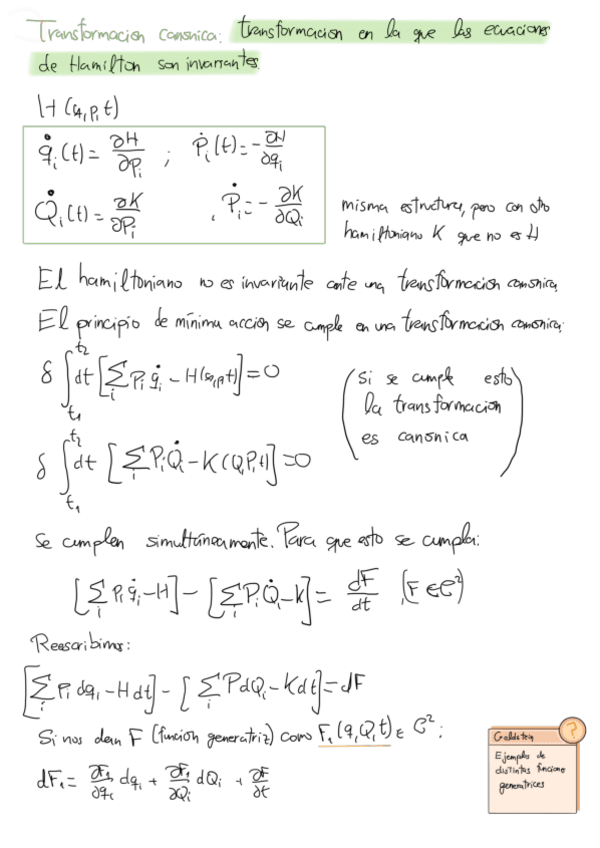 Transformacion canonica: transformacion en la que las ecuaciones
de Hamilton son invariantes.
H (q, p, t)
q̇ᵢ(t) = ∂H/∂pᵢ ; ṗᵢ(t) = -∂H/∂qᵢ
Q̇ᵢ(t) = ∂K/∂Pᵢ , Ṗᵢ = -∂K/∂Qᵢ
misma estructura, pero con otro
hamiltoniano K que no es H
El hamiltoniano no es invariante ante una transformacion canonica.
El principio de mínima acción se cumple en una transformación canonica:
δ ∫ₜ₁ᵗ² dt [Σᵢ pᵢ q̇ᵢ - H(q,p,t)] = 0
δ ∫ₜ₁ᵗ² dt [Σᵢ PᵢQ̇ᵢ - K(Q,P,t)] = 0
(Si se cumple esto
la transformacion
es canonica)
Se cumplen simultáneamente. Para que esto se cumpla:
[Σᵢ pᵢ q̇ᵢ - H] - [Σᵢ PᵢQ̇ᵢ - K] = dF/dt (F ∈ C²)
Reescribimos:
[Σᵢ pᵢ dqᵢ - H dt] - [Σᵢ P dQᵢ - K dt] = dF
Si nos dan F (función generatriz) como F₁(q, Q, t) ∈ C²:
dF₁ = ∂F₁/∂qᵢ dqᵢ + ∂F₁/∂Qᵢ dQᵢ + ∂F/∂t
?
Goldstein
Ejemplos de
distintas funcione
generatrices